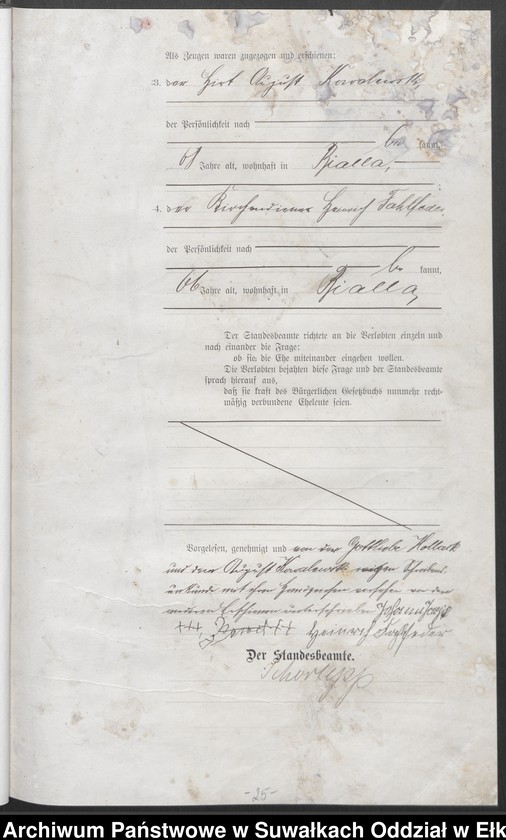 Als Zeugen waren zugezogen und erschienen:
3. der Hirt August Kowalewski,
der Persönlichkeit nach
be kannt,
61 Jahre alt, wohnhaft in Bialla,
4. der Kirchendiener Heinrich Fahlfeder,
der Persönlichkeit nach
be kannt,
66 Jahre alt, wohnhaft in Bialla,
Der Standesbeamte richtete an die Verlobten einzeln und
nach einander die Frage:
ob sie die Ehe miteinander eingehen wollen.
Die Verlobten bejahten diese Frage und der Standesbeamte
sprach hierauf aus,
daß sie kraft des Bürgerlichen Gesetzbuchs nunmehr recht-
mäßig verbundene Eheleute seien.
Vorgelesen, genehmigt und von der Gottliebe
und dem August Kowalewski wegen Schreibens
unkunde mit ihren Handzeichen versehen von den
unterschrieben
+++, +++ Heinrich Fahlfeder
Der Standesbeamte.
- 25 -
Archiwum Państwowe w Suwałkach Oddział w Ełk